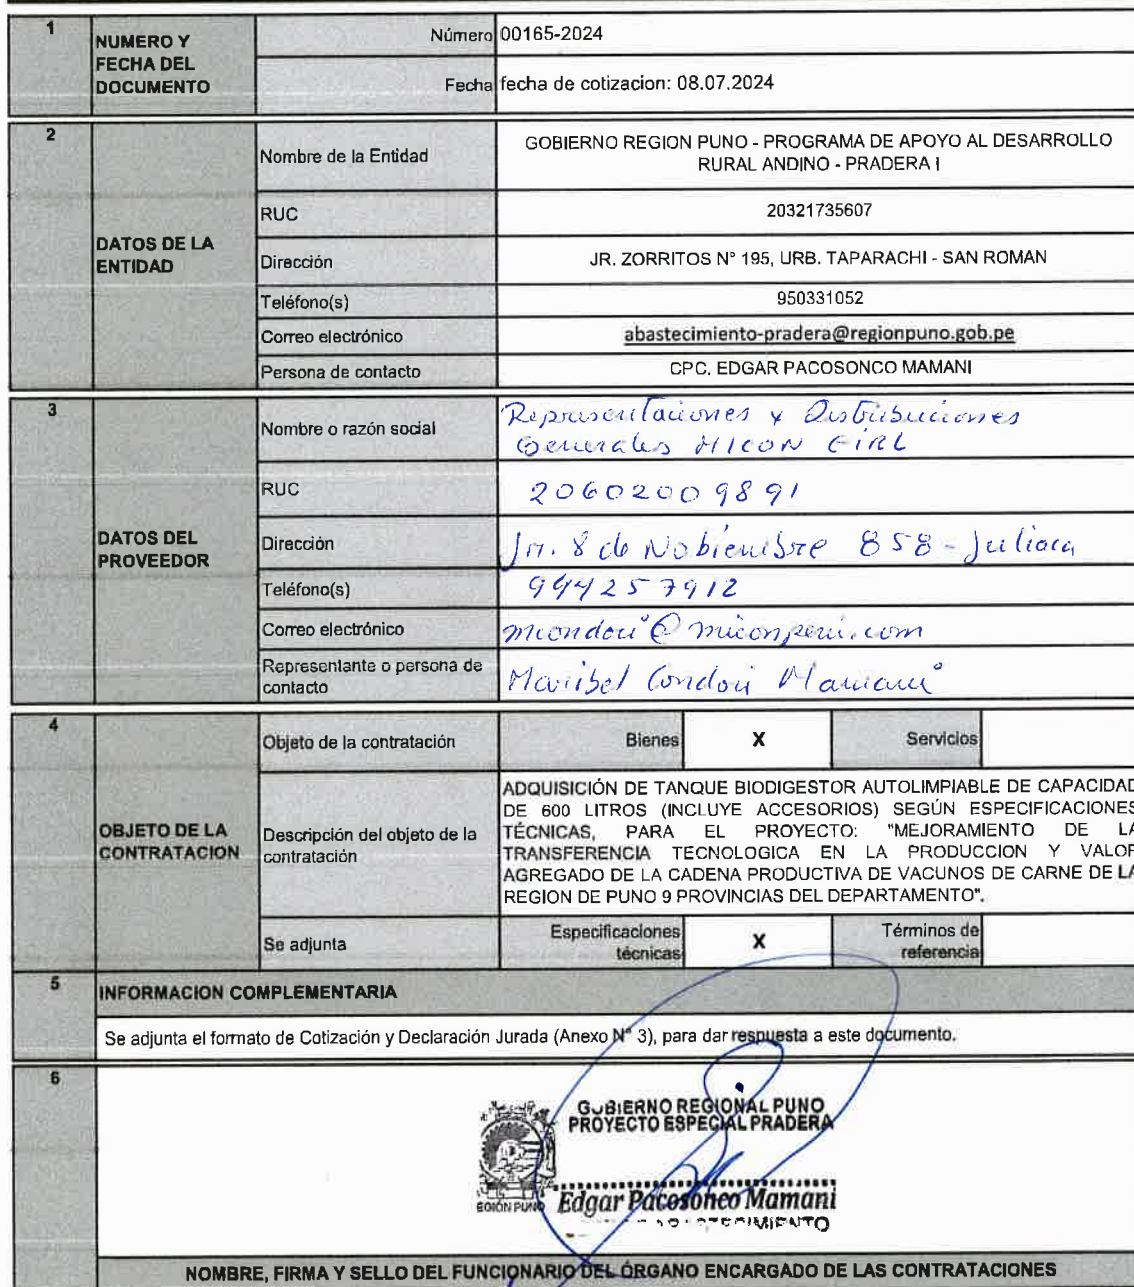 1
NUMERO Y
FECHA DEL
DOCUMENTO
Número 00165-2024
Fecha fecha de cotizacion: 08.07.2024
2
DATOS DE LA
ENTIDAD
Nombre de la Entidad
GOBIERNO REGION PUNO - PROGRAMA DE APOYO AL DESARROLLO
RURAL ANDINO - PRADERA I
RUC 20321735607
Dirección JR. ZORRITOS N° 195, URB. TAPARACHI - SAN ROMAN
Teléfono(s) 950331052
Correo electrónico abastecimiento-pradera@regionpuno.gob.pe
Persona de contacto CPC. EDGAR PACOSONCO MAMANI
3
DATOS DEL
PROVEEDOR
Nombre o razón social
Representaciones y Distribuciones
Generales MICON EIRL
RUC 20602009891
Dirección Jr. 8 de Nobiembre 858 - Juliaca
Teléfono(s) 944257912
Correo electrónico mcondori@miconperu.com
Representante o persona de
contacto
Maribel Condori Mamani
4
OBJETO DE LA
CONTRATACION
Objeto de la contratación Bienes X Servicios
Descripción del objeto de la
contratación
ADQUISICIÓN DE TANQUE BIODIGESTOR AUTOLIMPIABLE DE CAPACIDAD
DE 600 LITROS (INCLUYE ACCESORIOS) SEGÚN ESPECIFICACIONES
TÉCNICAS, PARA EL PROYECTO: "MEJORAMIENTO DE LA
TRANSFERENCIA TECNOLOGICA EN LA PRODUCCION Y VALOR
AGREGADO DE LA CADENA PRODUCTIVA DE VACUNOS DE CARNE DE LA
REGION DE PUNO 9 PROVINCIAS DEL DEPARTAMENTO".
Se adjunta
Especificaciones
técnicas
X
Términos de
referencia
5
INFORMACION COMPLEMENTARIA
Se adjunta el formato de Cotización y Declaración Jurada (Anexo N° 3), para dar respuesta a este documento.
6
GOBIERNO REGIONAL PUNO
PROYECTO ESPECIAL PRADERA
REGIÓN PUNO
Edgar Pacosonco Mamani
NOMBRE, FIRMA Y SELLO DEL FUNCIONARIO DEL ÓRGANO ENCARGADO DE LAS CONTRATACIONES